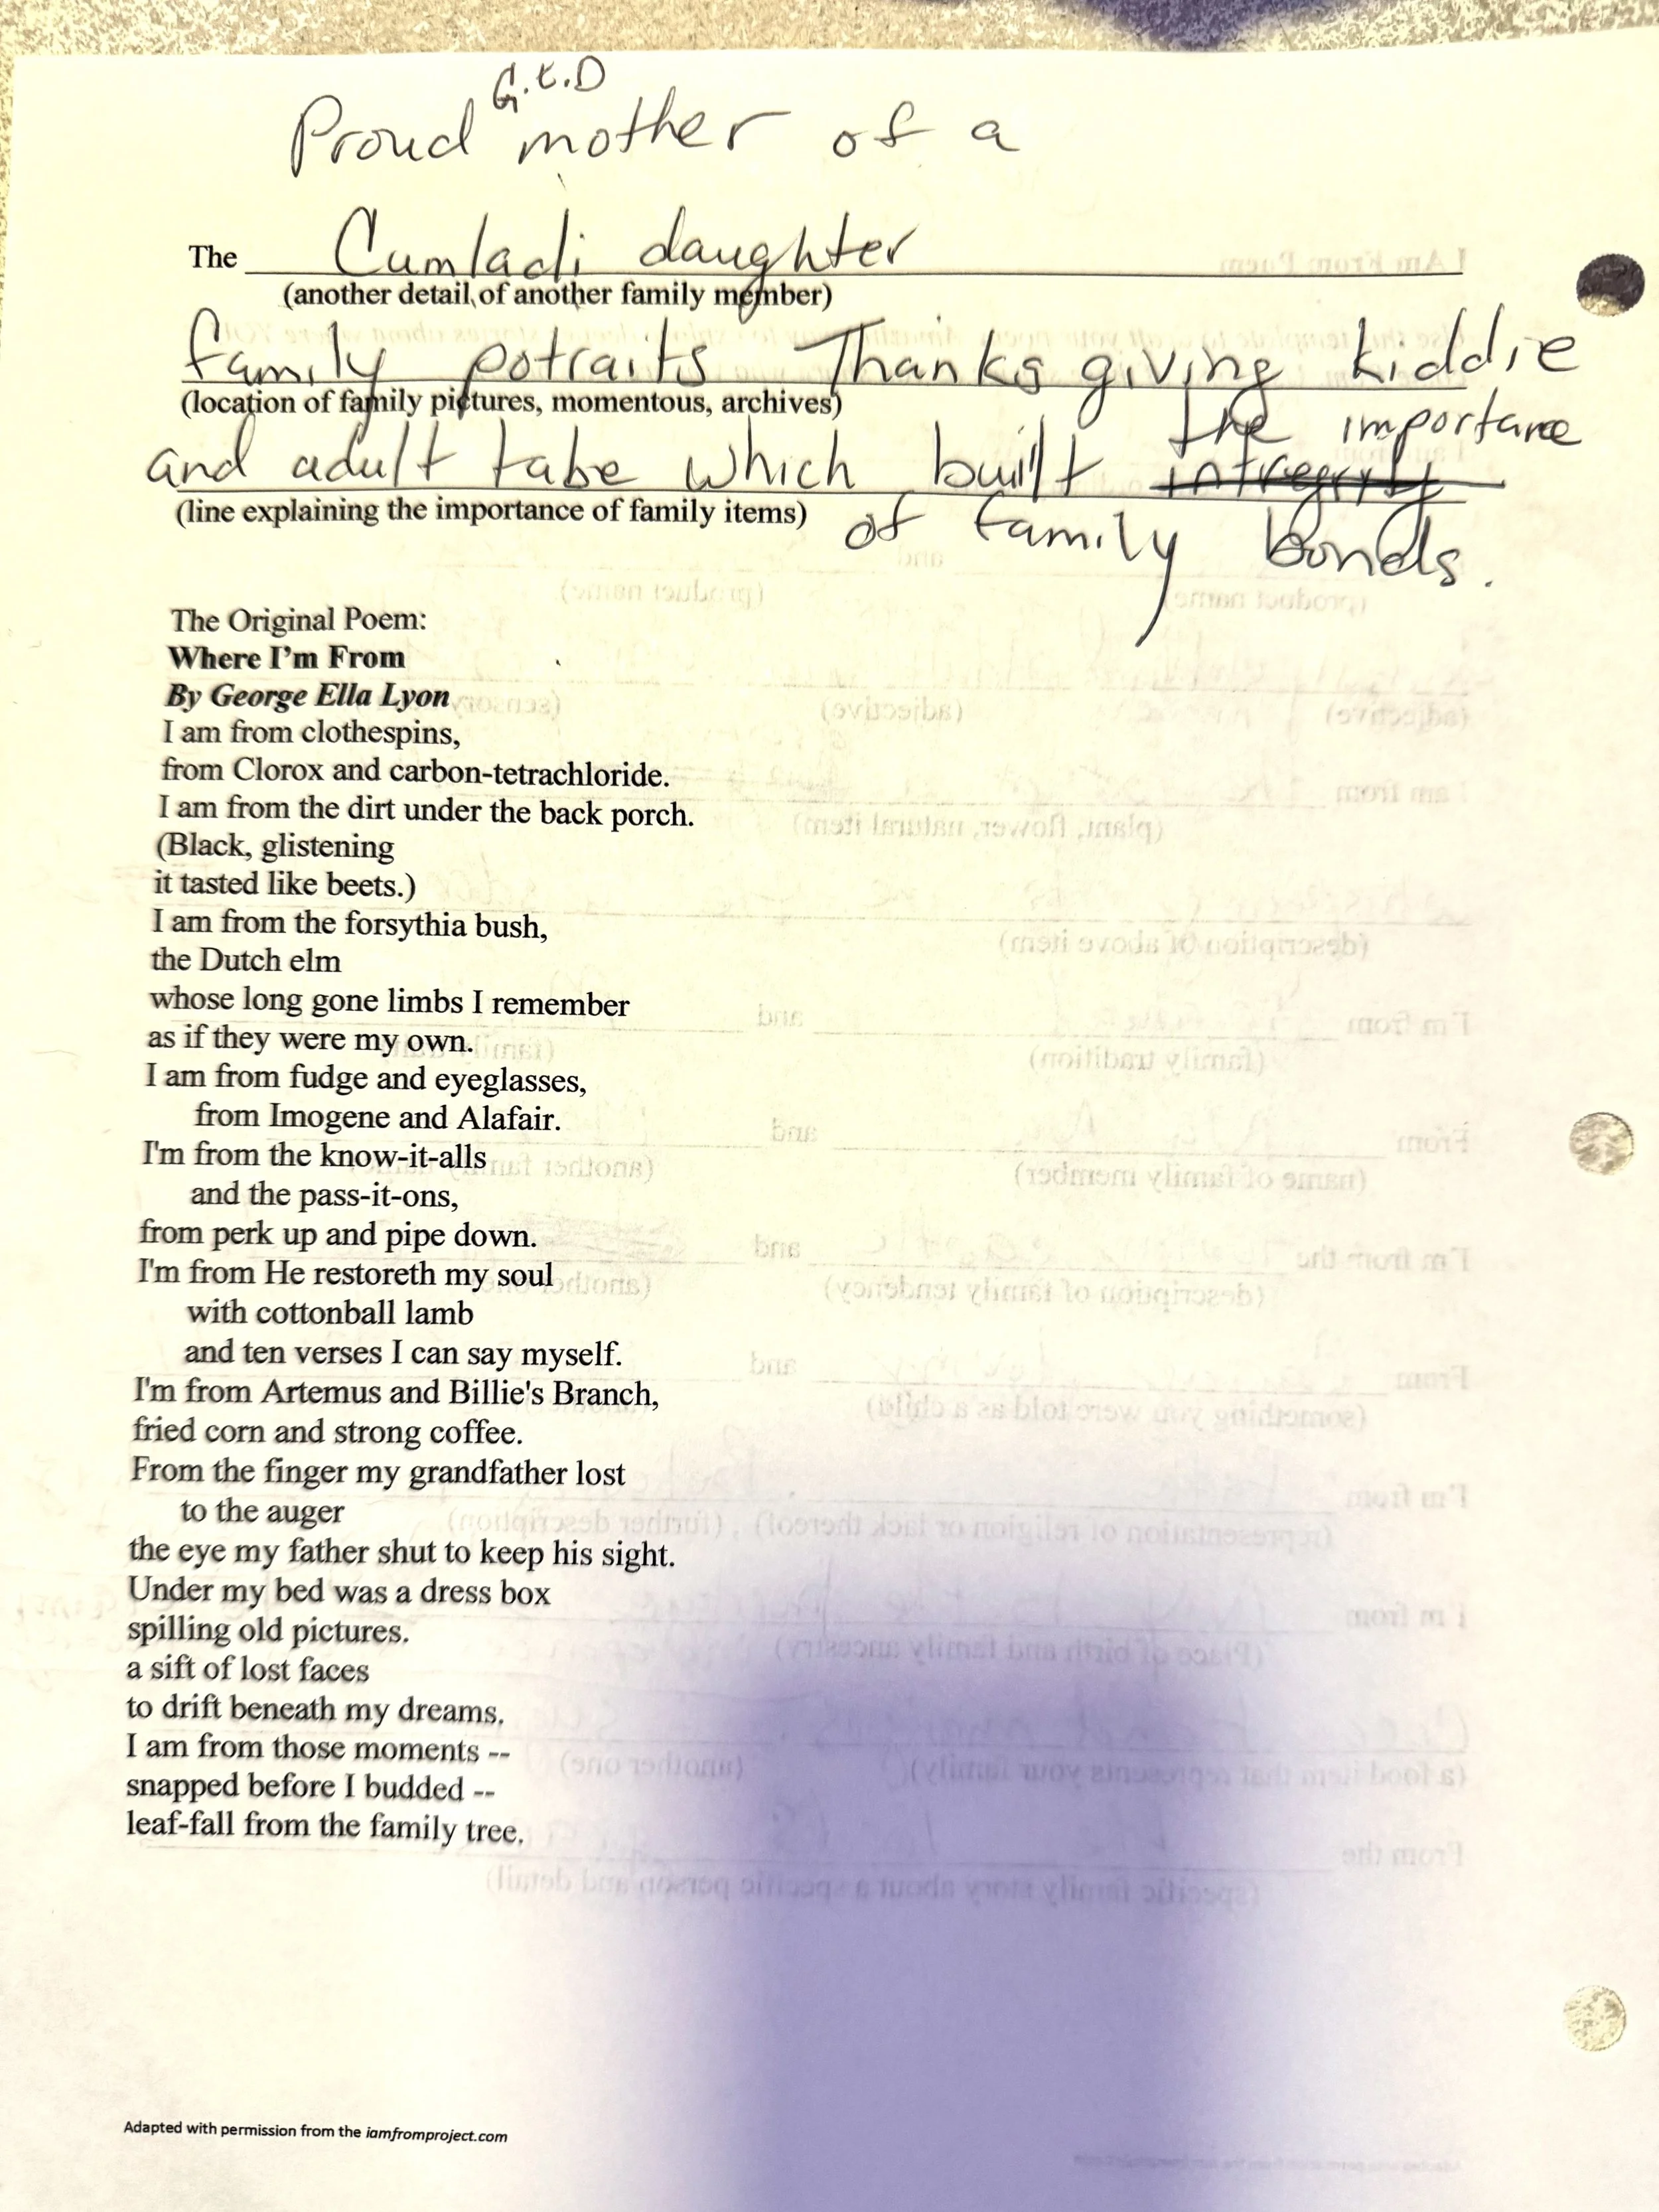 G.E.D
Proud mother of a
The Cumladi daughter
(another detail of another family member)
family potraits Thanksgiving kiddie
(location of family pictures, momentous, archives)
the importance
and adult tabe which built intregrity
(line explaining the importance of family items)
of family bonds.
The Original Poem:
Where I'm From
By George Ella Lyon
I am from clothespins,
from Clorox and carbon-tetrachloride.
I am from the dirt under the back porch.
(Black, glistening
it tasted like beets.)
I am from the forsythia bush,
the Dutch elm
whose long gone limbs I remember
as if they were my own.
I am from fudge and eyeglasses,
from Imogene and Alafair.
I'm from the know-it-alls
and the pass-it-ons,
from perk up and pipe down.
I'm from He restoreth my soul
with cottonball lamb
and ten verses I can say myself.
I'm from Artemus and Billie's Branch,
fried corn and strong coffee.
From the finger my grandfather lost
to the auger
the eye my father shut to keep his sight.
Under my bed was a dress box
spilling old pictures.
a sift of lost faces
to drift beneath my dreams.
I am from those moments --
snapped before I budded --
leaf-fall from the family tree.
Adapted with permission from the iamfromproject.com